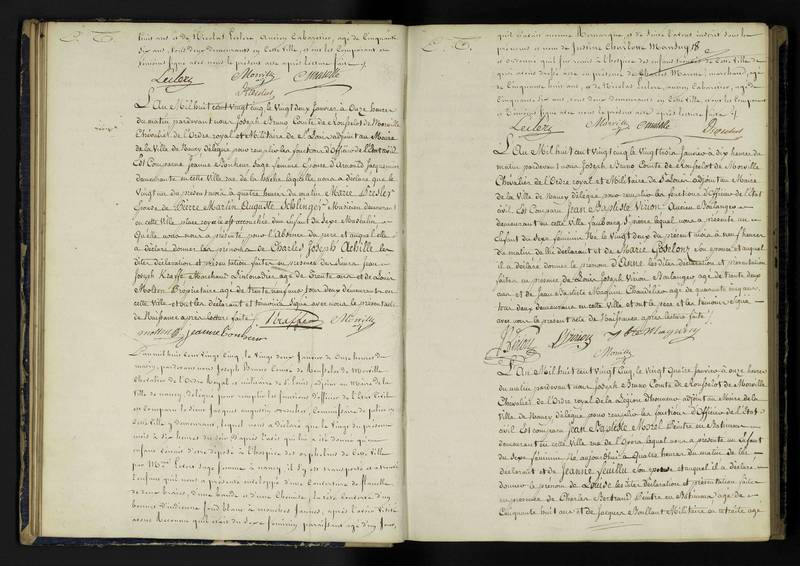 huit ans et de Nicolas Leclerc Ancien Cabaretier, age de Cinquante
Six ans, tous deux demeurants en Cette Ville, et ont les Comparant et
témoins signé avec nous le présent acte après lecture faite
Leclerc Morville
L'An Mil huit cent Vingt Cinq, le Vingt deux janvier à Onze heures
du matin pardevant nous Joseph Bruno Comte de Rousselot de Morville
Chevalier de l'Ordre royal et Militaire de St Louis, adjoint au Maire
de la Ville de Nancy, délégué pour remplir les fonctions d'Officier de l'Etat civil
Est Comparue Jeanne Bonheur Sage femme
demeurante en cette Ville rue de la hache laquelle nous a déclaré que le
Vingt un du présent mois à quatre heures du matin Marie
Epouse de Pierre Martin Auguste Schlinger Musicien demeurant
en cette Ville place royale est accouchée d'un Enfant du Sexe Masculin
Quelle nous a présenté pour l'Absence du pere et auquel elle
a déclaré donner les prénoms de Charles Joseph Achille les
dites déclaration et présentation faites en présence des Sieurs Jean
Joseph Kraffe Marchand age de Trente ans et de Louis
Propriétaire age de trente neuf ans tous deux demeurant en
cette Ville et ont les déclarant et témoins Signé avec nous le présent acte
de Naissance après lecture faite Kraffe Morville
jeanne bonheur
L'an mil huit cent Vingt Cinq, le Vingt deux Janvier à Onze heures du
matin, pardevant nous Joseph Bruno Comte de Rousselot de Morville
Chevalier de l'Ordre Royal et militaire de St Louis, adjoint au Maire de la
Ville de nancy, délégué pour remplir les fonctions d'officier de l'Etat Civil
est comparu le Sieur Jacques augustin Commissaire de police en
Cette Ville y demeurant, lequel nous a déclaré que le Vingt du présent
mois à six heures du soir d'après l'avis qui lui a été donné qu'un
enfant venait d'être déposé à l'hospice des orphelins de Cette Ville
par Mme sage femme à nancy, il s'y est transporté et a trouvé
l'enfant qui nous a présenté enveloppé d'une Couverture de flanelle
de deux draps, d'une bande et d'une Chemise, la tête Couverte d'un
bonnet d'indienne fond blanc à mouches jaunes, après l'avoir Visité
avons Reconnu qu'il était du Sexe féminin, paraissant agé d'un jour,
qu'il n'avait aucune Remarque, et de Suite l'avons inscrit sous les
prénoms et nom de Justine Charlotte Mansuy
et ordonné qu'il fut remis à l'hospice des enfans de Cette Ville de
quoi avons dressé acte en présence de Charles marchand, age
de Cinquante huit ans, et de Nicolas Leclerc, ancien Cabaretier, age de
Cinquante Six ans, tous deux demeurans en Cette Ville, et ont les Comparant
et témoins signé avec nous le présent acte après lecture faite
Leclerc Morville
L'An Mil huit cent Vingt Cinq le Vingt trois janvier à dix heures du
matin pardevant nous Joseph Bruno Comte de Rousselot de Morville
Chevalier de l'Ordre royal et Militaire de St Louis adjoint au Maire
de la Ville de Nancy délégué pour remplir les fonctions d'Officier de l'Etat
civil. Est Comparu Jean Baptiste Virion Ancien Boulanger
demeurant en cette Ville faubourg St pierre lequel nous a présenté un
Enfant du sexe féminin Né le Vingt deux du présent mois à neuf heures
du matin de lui déclarant et de Marie Son epouse et auquel
il a déclaré donner le prénom d'Anne les dites déclaration et présentation
faites en présence de Louis Virion Boulanger age de trente deux
ans et de Jean Baptiste Maguin Chandelier age de quarante cinq ans
tous deux demeurans en cette Ville et ont le père et les témoins Signé
avec nous le présent acte de Naissance après lecture faite
Virion Virion Maguin
Morville
L'An Mil huit cent Vingt Cinq, le Vingt quatre janvier à onze heures
du matin pardevant nous Joseph Bruno Comte de Rousselot de Morville
Chevalier de l'Ordre royal de la Légion d'honneur adjoint au Maire de la
Ville de Nancy délégué pour remplir les fonctions d'Officier de l'Etat
civil. Est comparu Jean Baptiste Morel Peintre en Batiment
demeurant en cette Ville rue de Grève lequel nous a présenté un Enfant
du Sexe féminin Né aujourd'hui à Quatre heures du matin de lui
déclarant et de Jeanne feuillu Son epouse et auquel il a déclaré
donner le prénom de Louise les dites déclaration et présentation faites
en présence de Charles Bertrand Peintre en Batiment age de
Cinquante huit ans et de Jacques Militaire en retraite agé